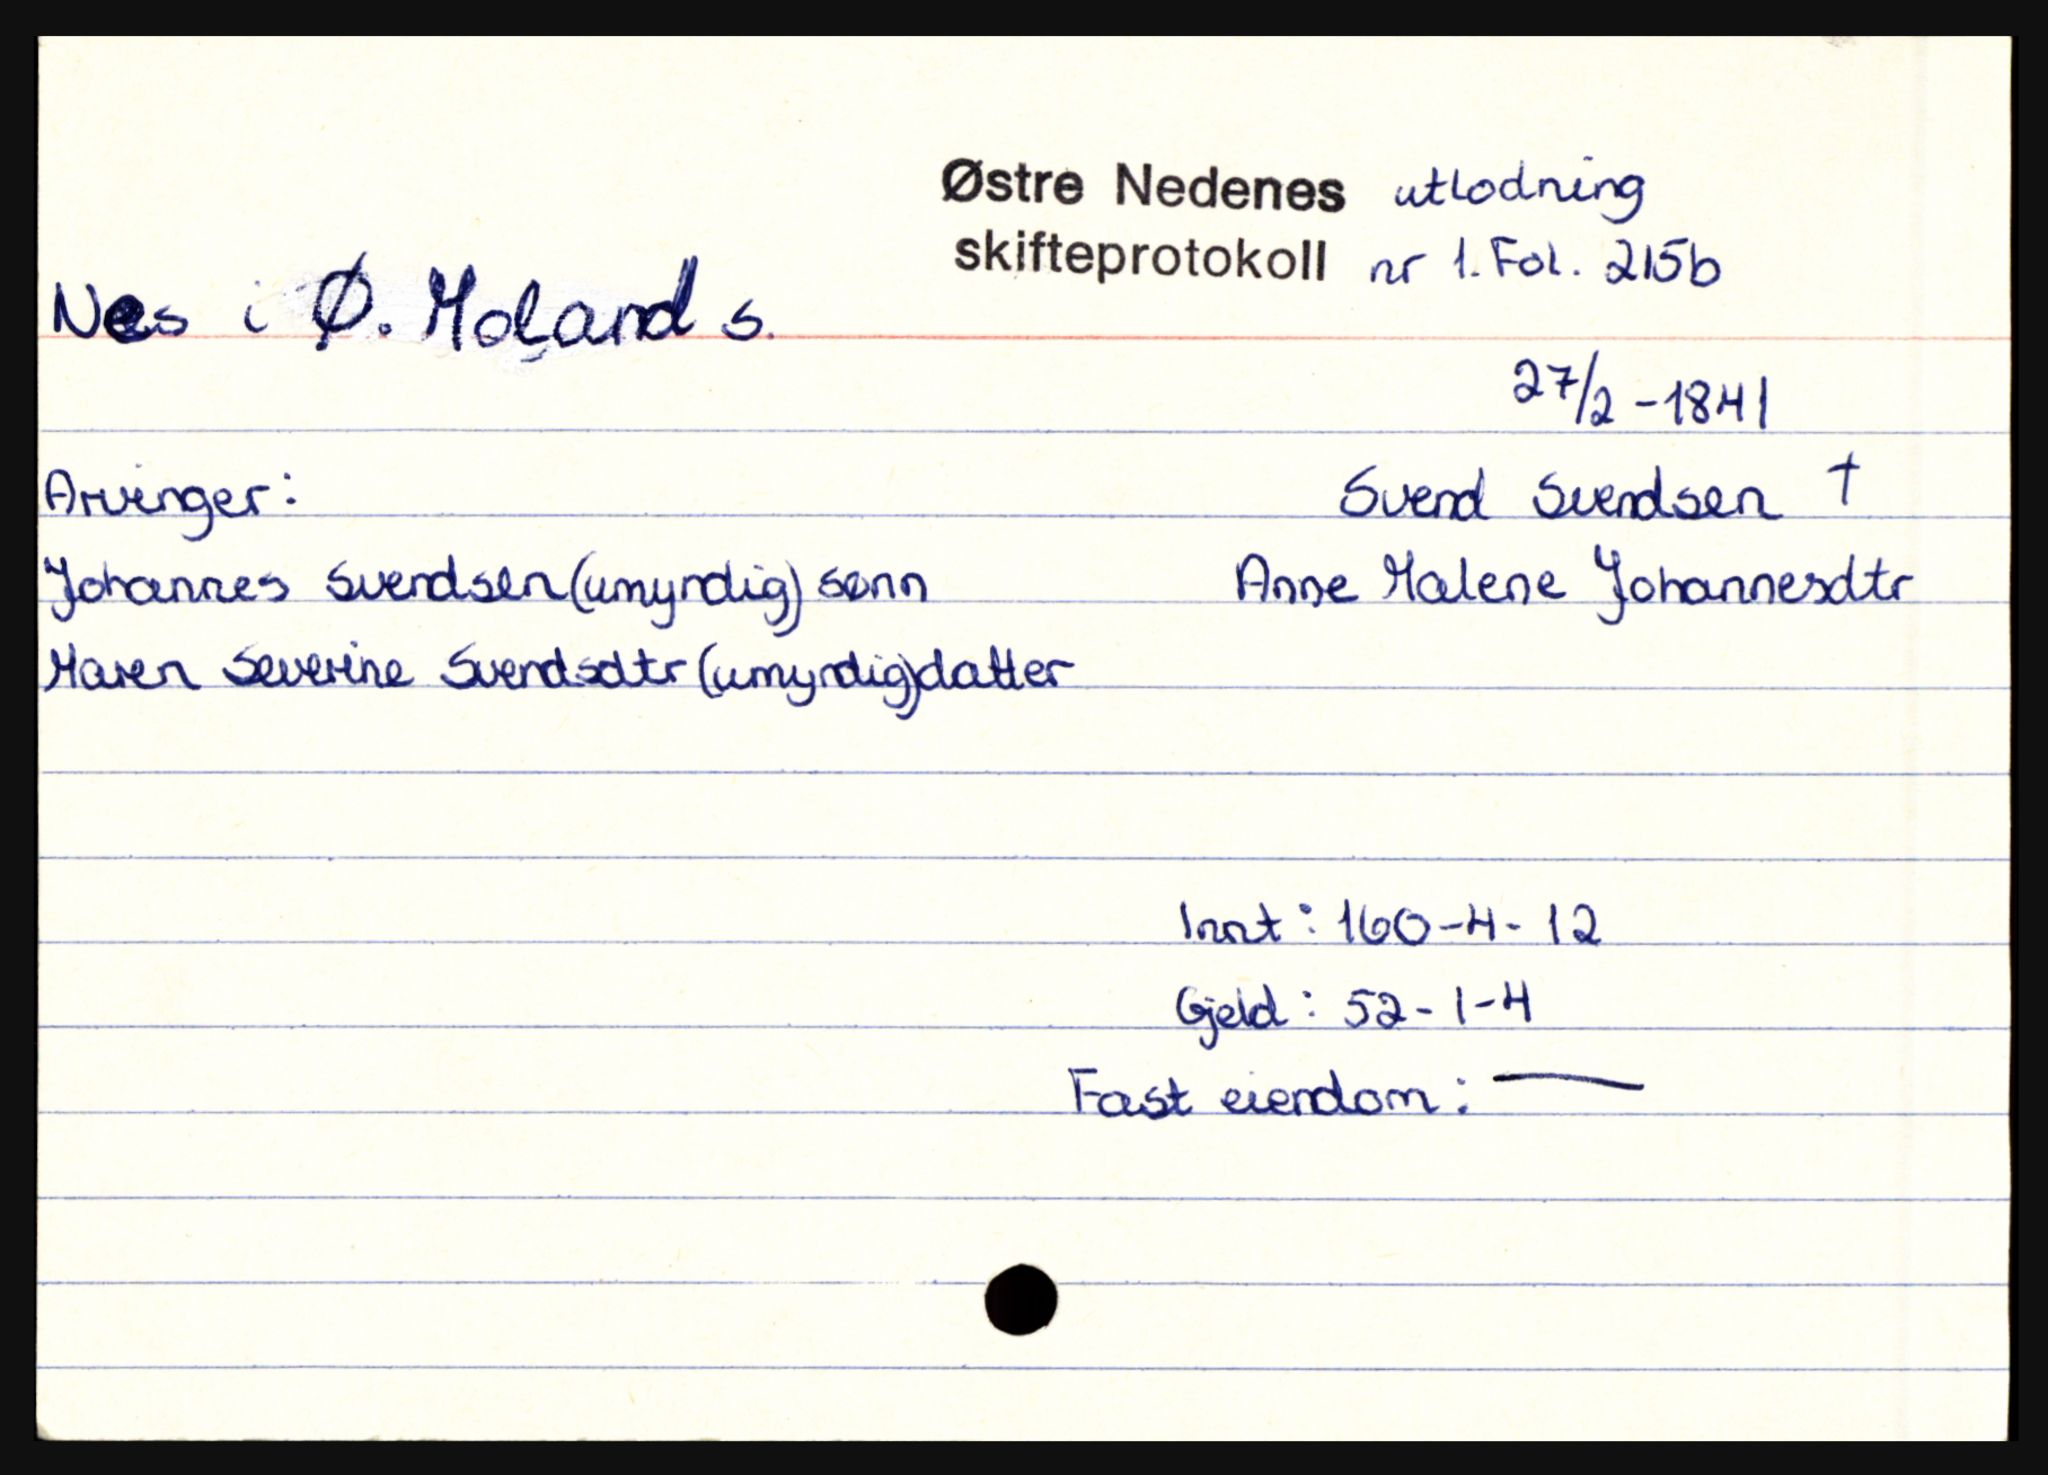 Østre Nedenes utlodning
skifteprotokoll nr 1. Fol. 215b
Nes i Ø. Moland s.
27/2 - 1841
Arvinger:
Svend Svendsen †
Johannes Svendsen (umyndig) sønn
Anne Malene Johannesdtr
Maren Severine Svendsdtr (umyndig) datter
Innt: 160-4-12
Gjeld: 52-1-4
Fast eiendom: —